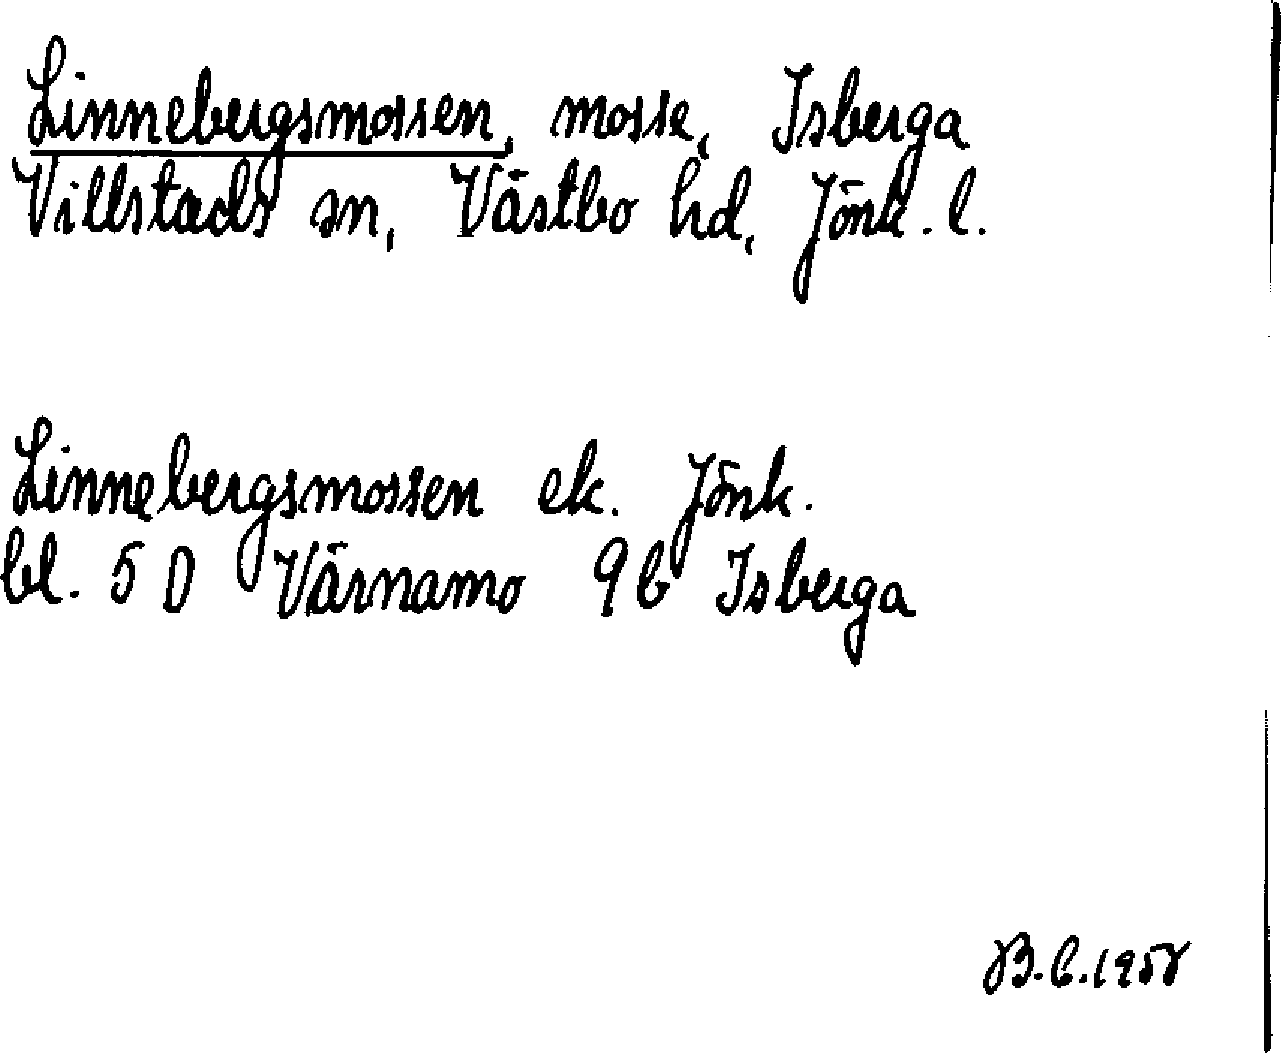 Linnebergsmossen, mosse, Isberga
Villstads sn, Västbo hd, Jönk. l.
Linnebergsmossen ek. Jönk.
bl. 5 D Värnamo 9b Isberga
B.C. 1958